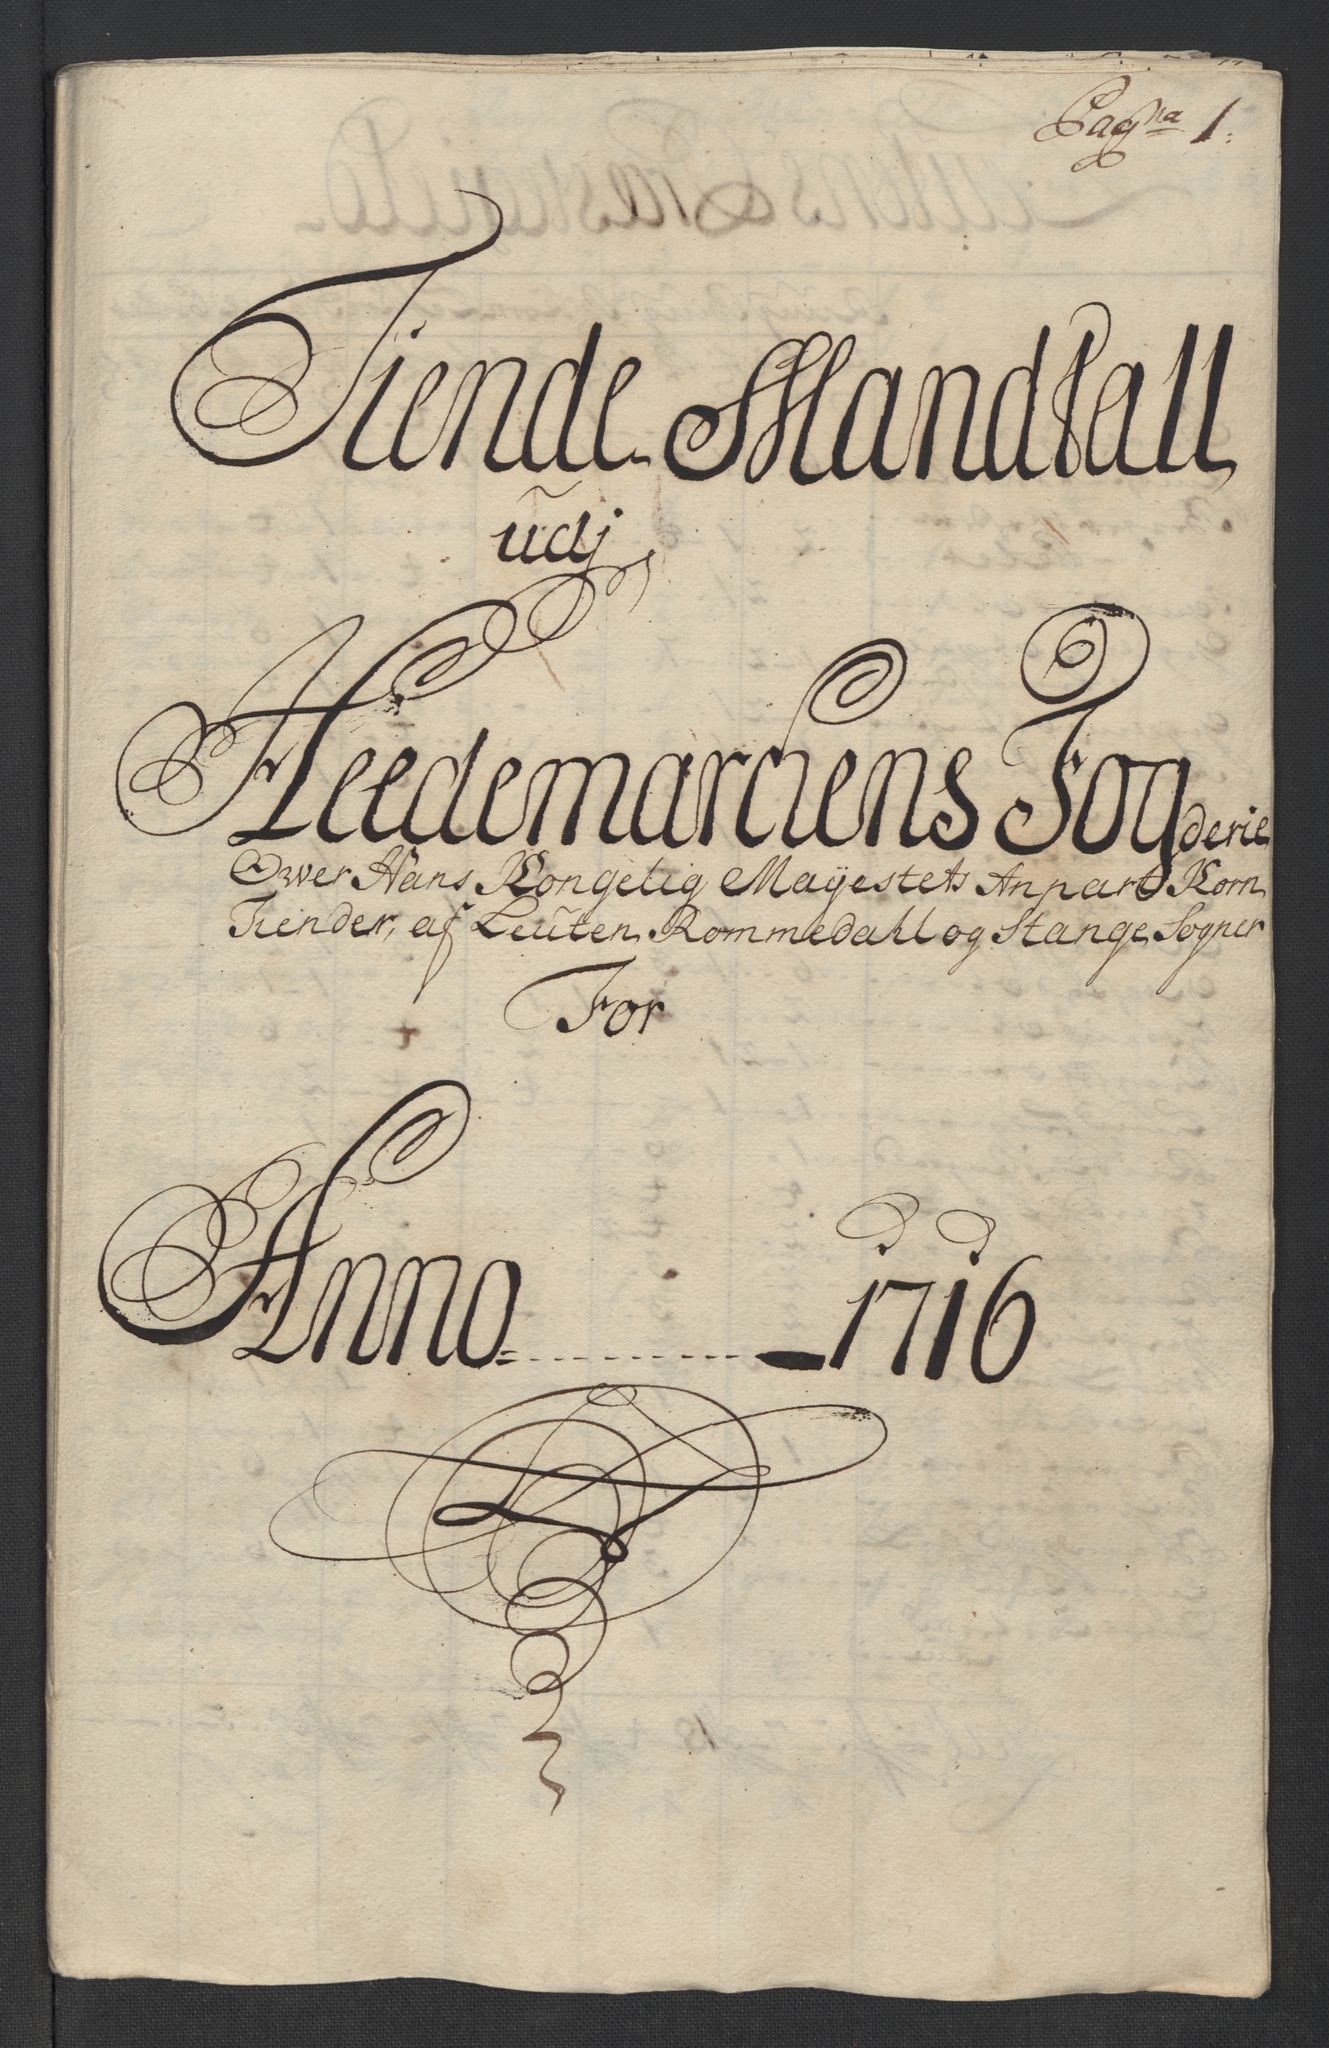 Pagna 1.
Tiende Mandtall
udj
Heedemarckens Fogderie
Ower Hans Kongelig Maÿestets Anpart Korn
Tiender, af Leuten, Rommedahl og Stange Sogner
For
Anno 1716